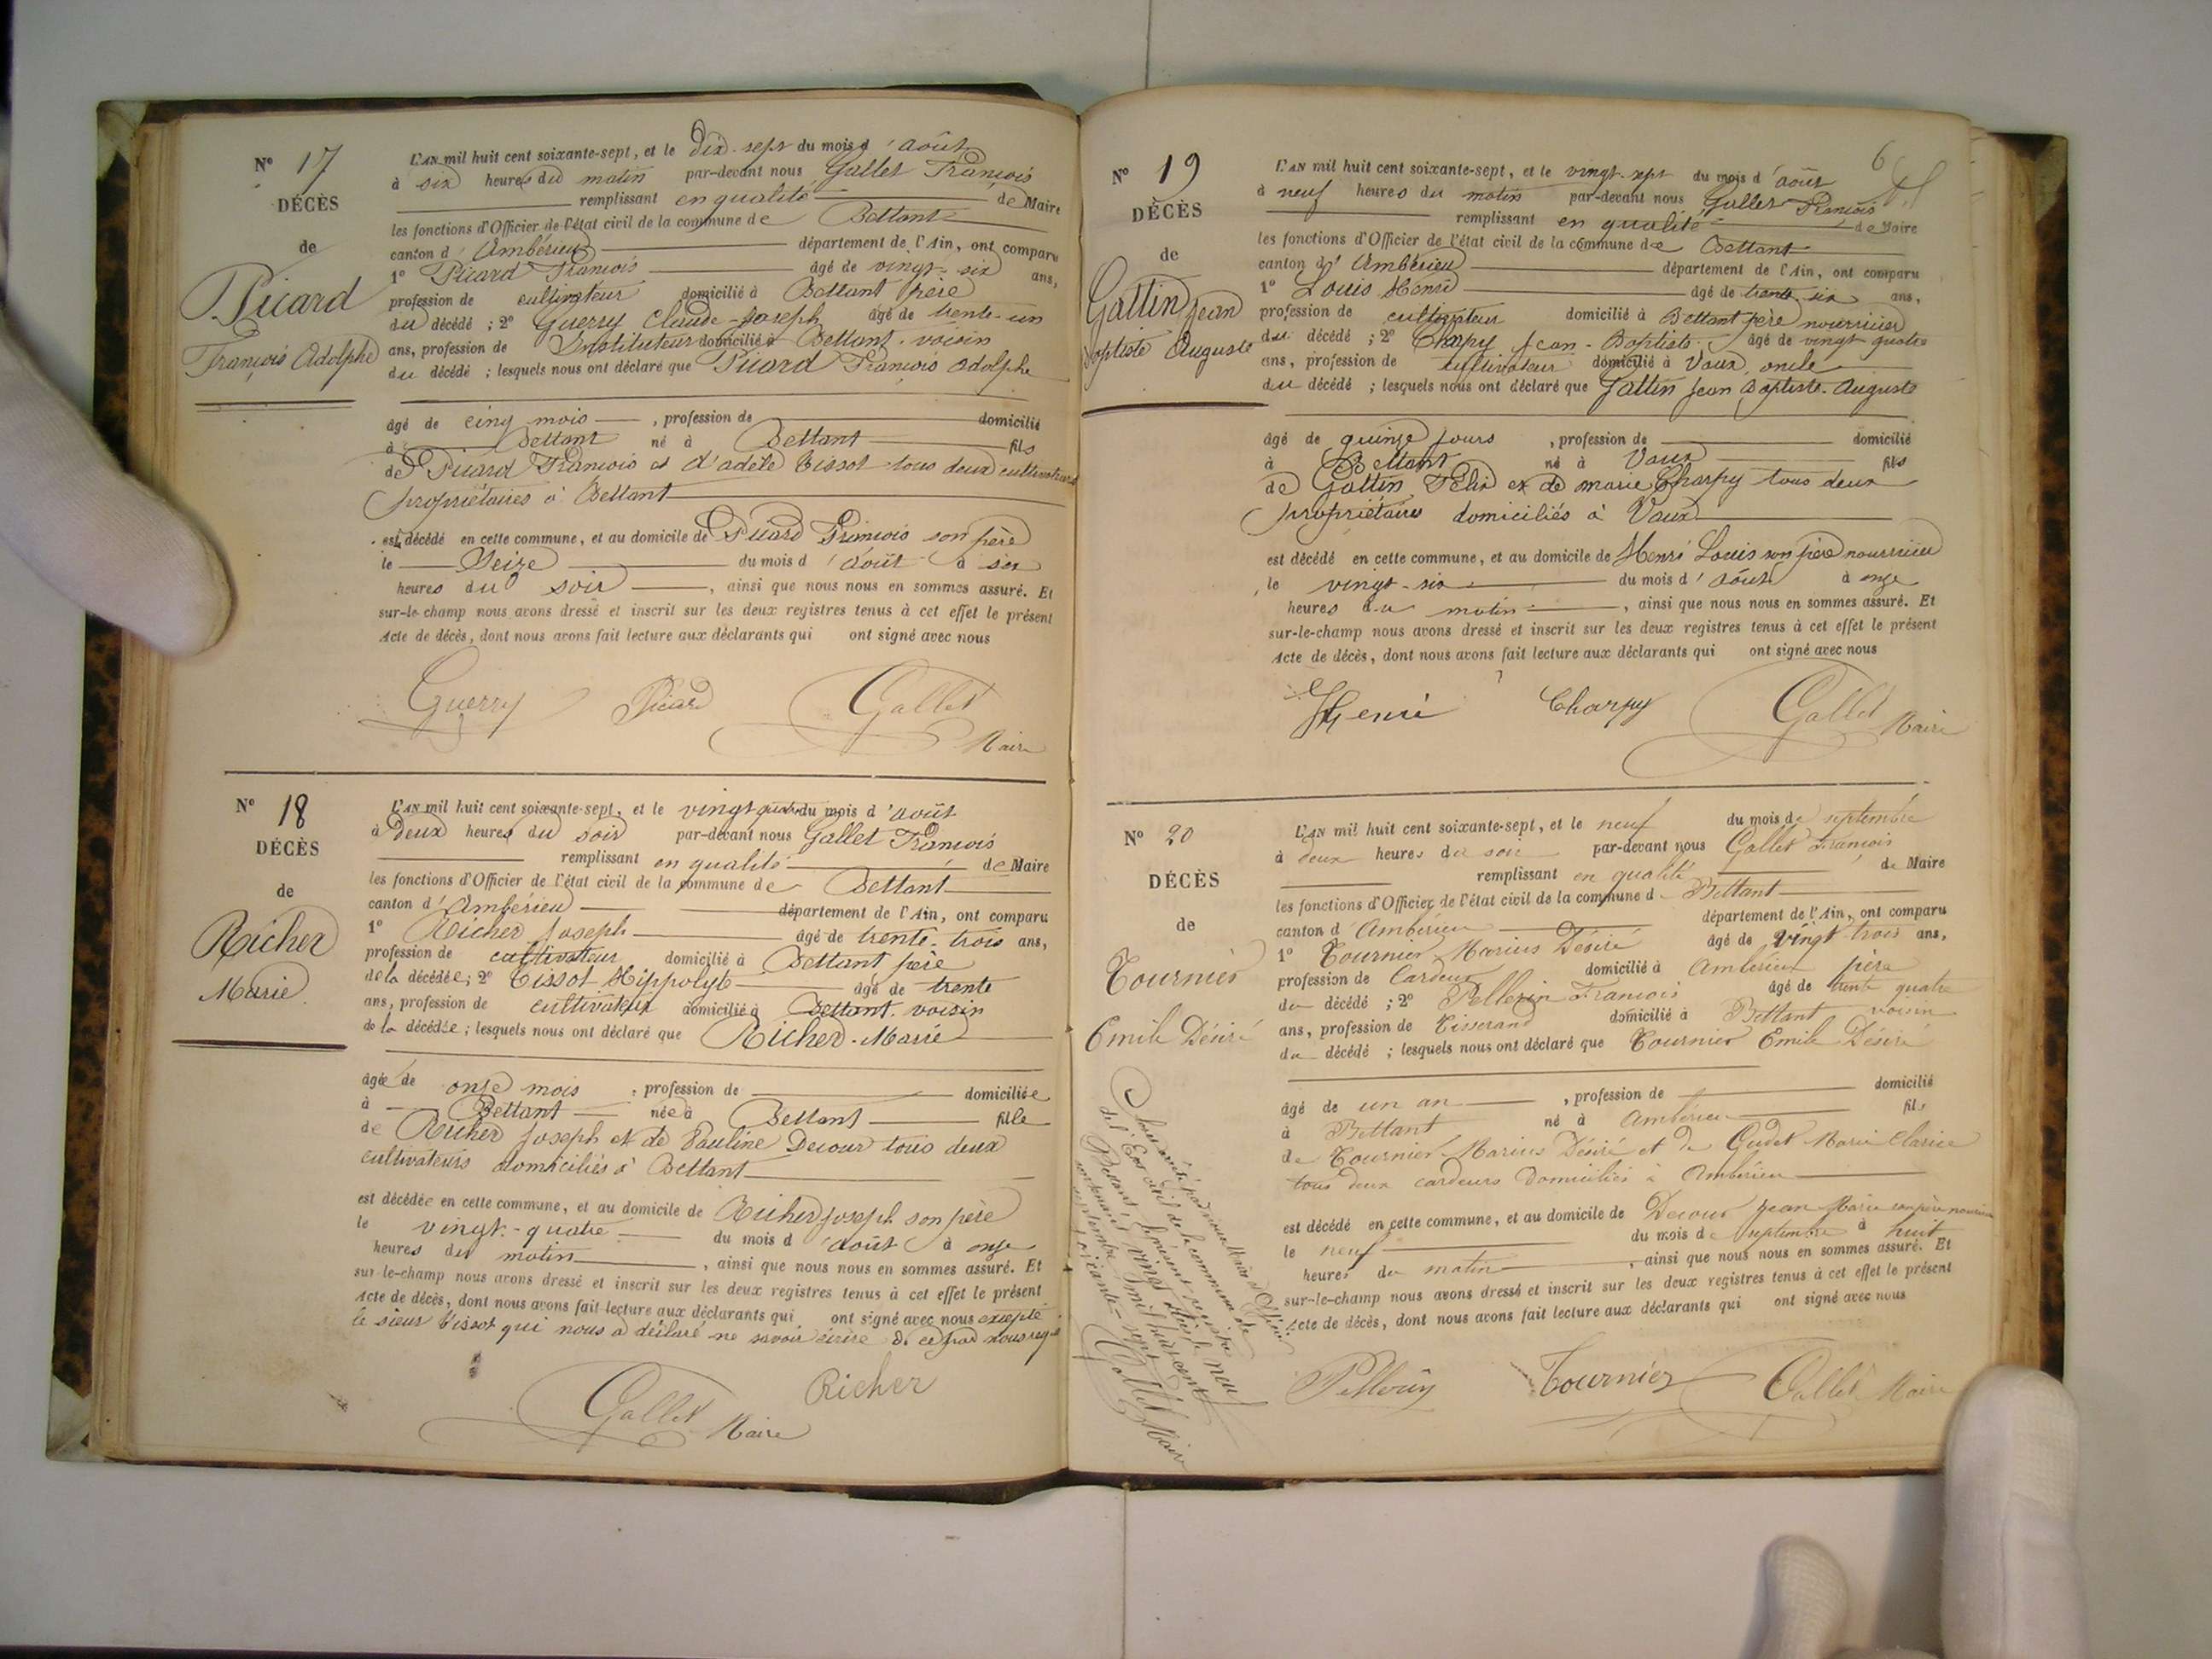 Nº 17
DÉCÈS
de
Picard
François Adolphe
L'AN mil huit cent soixante-sept, et le dix-sept du mois d'août
à six heures du matin par-devant nous Gallet François
remplissant en qualité de Maire
les fonctions d'Officier de l'état civil de la commune de Bettant
canton d'Ambérieu département de l'Ain, ont comparu
1º Picard François âgé de vingt-six ans,
profession de cultivateur domicilié à Bettant père
du décédé ; 2º Guerry Claude-Joseph âgé de trente-un
ans, profession de Instituteur domicilié à Bettant. voisin
du décédé ; lesquels nous ont déclaré que Picard François Adolphe
âgé de cinq mois , profession de domicilié
à Bettant né à Bettant fils
de Picard François et d'adèle Tissot tous deux cultivateurs
propriétaires à Bettant
est décédé en cette commune, et au domicile de Picard François son père
le Seize du mois d'août à six
heures du soir , ainsi que nous nous en sommes assuré. Et
sur-le-champ nous avons dressé et inscrit sur les deux registres tenus à cet effet le présent
Acte de décès, dont nous avons fait lecture aux déclarants qui ont signé avec nous
Guerry Picard Gallet
Maire
Nº 18
DÉCÈS
de
Richer
Marie
L'AN mil huit cent soixante-sept, et le vingt quatre du mois d'août
à deux heures du soir par-devant nous Gallet François
remplissant en qualité de Maire
les fonctions d'Officier de l'état civil de la commune de Bettant
canton d'Ambérieu département de l'Ain, ont comparu
1º Richer Joseph âgé de trente-trois ans,
profession de cultivateur domicilié à Bettant père
de la décédée ; 2º Tissot Hippolyte âgé de trente
ans, profession de cultivateur domicilié à Bettant. voisin
de la décédée ; lesquels nous ont déclaré que Richer Marie
âgée de onze mois , profession de domiciliée
à Bettant née à Bettant fille
de Richer Joseph et de Pauline Decour tous deux
cultivateurs domiciliés à Bettant
est décédée en cette commune, et au domicile de Richer Joseph son père
le vingt-quatre du mois d'août à onze
heures du matin , ainsi que nous nous en sommes assuré. Et
sur-le-champ nous avons dressé et inscrit sur les deux registres tenus à cet effet le présent
Acte de décès, dont nous avons fait lecture aux déclarants qui ont signé avec nous excepté
le sieur Tissot qui nous a déclaré ne savoir écrire de ce par nous
Gallet Maire Richer
6
Nº 19
DÉCÈS
de
Gattin Jean
Baptiste Auguste
L'AN mil huit cent soixante-sept, et le vingt-sept du mois d'août
à neuf heures du matin par-devant nous Gallet François
remplissant en qualité de Maire
les fonctions d'Officier de l'état civil de la commune de Bettant
canton d'Ambérieu département de l'Ain, ont comparu
1º Louis Henri âgé de trente-six ans,
profession de cultivateur domicilié à Bettant père nourricier
du décédé ; 2º Charpy Jean-Baptiste âgé de vingt quatre
ans, profession de cultivateur domicilié à Vaux, oncle
du décédé ; lesquels nous ont déclaré que Gattin Jean Baptiste-Auguste
âgé de quinze jours , profession de domicilié
à Bettant né à Vaux fils
de Gattin Félix et de marie Charpy tous deux
propriétaires domiciliés à Vaux
est décédé en cette commune, et au domicile de Henri Louis son père nourricier
le vingt-six du mois d'août à onze
heures du matin , ainsi que nous nous en sommes assuré. Et
sur-le-champ nous avons dressé et inscrit sur les deux registres tenus à cet effet le présent
Acte de décès, dont nous avons fait lecture aux déclarants qui ont signé avec nous
Henri Charpy Gallet Maire
Nº 20
DÉCÈS
de
Tournier
Emile Désiré
L'AN mil huit cent soixante-sept, et le neuf du mois de septembre
à deux heures du soir par-devant nous Gallet François
remplissant en qualité de Maire
les fonctions d'Officier de l'état civil de la commune d Bettant
canton d'Ambérieu département de l'Ain, ont comparu
1º Tournier Marius Désiré âgé de vingt-trois ans,
profession de Cardeur domicilié à Ambérieu père
du décédé ; 2º Pellerin François âgé de trente quatre
ans, profession de Tisserand domicilié à Bettant voisin
du décédé ; lesquels nous ont déclaré que Tournier Emile Désiré
âgé de un an , profession de domicilié
à Bettant né à Ambérieu fils
de Tournier Marius Désiré et de Gudet Marie Clarice
tous deux cardeurs domiciliés à Ambérieu
est décédé en cette commune, et au domicile de Decour Jean Marie son père nourricier
le neuf du mois de septembre à huit
heures du matin , ainsi que nous nous en sommes assuré. Et
sur-le-champ nous avons dressé et inscrit sur les deux registres tenus à cet effet le présent
Acte de décès, dont nous avons fait lecture aux déclarants qui ont signé avec nous
Tournier Gallet Maire
par nous Maire et Officier
de l'État civil de la commune de
Bettant, le présent registre
contenant vingt actes le neuf
septembre mil huit cent
soixante-sept
Gallet Maire